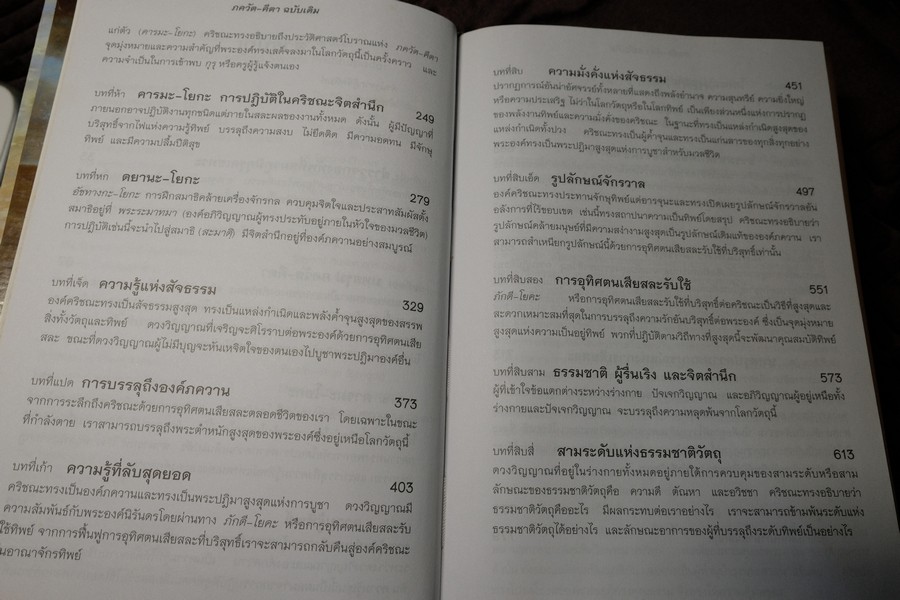 ภควัต-คีตา ฉบับเดิม
แก่ตัว (คารมะ-โยกะ) คริชณะทรงอธิบายถึงประวัติศาสตร์โบราณแห่ง ภควัต-คีตา
จุดมุ่งหมายและความสำคัญที่พระองค์ทรงเสด็จลงมาในโลกวัตถุนี้เป็นครั้งคราว และ
ความจำเป็นในการเข้าพบ กูรุ หรือครูผู้รู้แจ้งตนเอง
บทที่ห้า คารมะ-โยกะ การปฏิบัติในคริชณะจิตสำนึก 249
ภายนอกอาจปฏิบัติงานทุกชนิดแต่ภายในสละผลของงานทั้งหมด ดังนั้น ผู้มีปัญญาที่
บริสุทธิ์จากไฟแห่งความรู้ทิพย์ บรรลุถึงความสงบ ไม่ยึดติด มีความอดทน มีจักษุ
ทิพย์ และมีความปลื้มปีติสุข
บทที่หก ดยานะ-โยกะ 279
อัชทางกะ-โยกะ การฝึกสมาธิคล้ายเครื่องจักรกล ควบคุมจิตใจและประสาทสัมผัสตั้ง
สมาธิอยู่ที่ พระระมาทมา (องค์อภิวิญญาณผู้ทรงประทับอยู่ภายในหัวใจของมวลชีวิต)
การปฏิบัติเช่นนี้จะนำไปสู่สมาธิ (สะมาดิ) มีจิตสำนึกอยู่ที่องค์ภควานอย่างสมบูรณ์
บทที่เจ็ด ความรู้แห่งสัจธรรม 329
องค์คริชณะทรงเป็นสัจธรรมสูงสุด ทรงเป็นแหล่งกำเนิดและพลังค้ำจุนสูงสุดของสรรพ
สิ่งทั้งวัตถุและทิพย์ ดวงวิญญาณที่เจริญจะศิโรราบต่อพระองค์ด้วยการอุทิศตนเสีย
สละ ขณะที่ดวงวิญญาณผู้ไม่มีบุญจะหันเหจิตใจของตนเองไปบูชาพระปฏิมาองค์อื่น
บทที่แปด การบรรลุถึงองค์ภควาน 373
จากการระลึกถึงคริชณะด้วยการอุทิศตนเสียสละตลอดชีวิตของเรา โดยเฉพาะในขณะ
ที่กำลังตาย เราสามารถบรรลุถึงพระตำหนักสูงสุดของพระองค์ซึ่งอยู่เหนือโลกวัตถุนี้
บทที่เก้า ความรู้ที่ลับสุดยอด 403
คริชณะทรงเป็นองค์ภควานและทรงเป็นพระปฏิมาสูงสุดแห่งการบูชา ดวงวิญญาณมี
ความสัมพันธ์กับพระองค์นิรันดรโดยผ่านทาง ภักดี-โยคะ หรือการอุทิศตนเสียสละรับ
ใช้ทิพย์ จากการฟื้นฟูการอุทิศตนเสียสละที่บริสุทธิ์เราจะสามารถกลับคืนสู่องค์คริชณะ
นอาณาจักรทิพย์
บทที่สิบ ความมั่งคั่งแห่งสัจธรรม 451
ปรากฏการณ์อันน่าอัศจรรย์ทั้งหลายที่แสดงถึงพลังอำนาจ ความสุนทรีย์ ความยิ่งใหญ่
หรือความประเสริฐ ไม่ว่าในโลกวัตถุหรือในโลกทิพย์ เป็นเพียงส่วนหนึ่งแห่งการปรากฏ
ของพลังงานทิพย์และความมั่งคั่งของคริชณะ ในฐานะที่ทรงเป็นแหล่งกำเนิดสูงสุดของ
แหล่งกำเนิดทั้งปวง คริชณะทรงเป็นผู้ค้ำจุนและทรงเป็นแก่นสารของทุกสิ่งทุกอย่าง
พระองค์ทรงเป็นพระปฏิมาสูงสุดแห่งการบูชาสำหรับมวลชีวิต
บทที่สิบเอ็ด รูปลักษณ์จักรวาล 497
องค์คริชณะทรงประทานจักษุทิพย์แด่อารจุนะและทรงเปิดเผยรูปลักษณ์จักรวาลอัน
อลังการที่ไร้ขอบเขต เช่นนี้ทรงสถาปนาความเป็นทิพย์โดยสรุป คริชณะทรงอธิบายว่า
รูปลักษณ์คล้ายมนุษย์ที่มีความสง่างามสูงสุดเป็นรูปลักษณ์เดิมแท้ขององค์ภควาน เรา
สามารถสำเหนียกรูปลักษณ์นี้ด้วยการอุทิศตนเสียสละรับใช้ที่บริสุทธิ์เท่านั้น
บทที่สิบสอง การอุทิศตนเสียสละรับใช้ 551
ภักดี-โยคะ หรือการอุทิศตนเสียสละรับใช้ที่บริสุทธิ์ต่อคริชณะเป็นวิธีที่สูงสุดและ
สะดวกเหมาะสมที่สุดในการบรรลุถึงความรักอันบริสุทธิ์ต่อพระองค์ ซึ่งเป็นจุดมุ่งหมาย
สูงสุดแห่งความเป็นอยู่ทิพย์ พวกที่ปฏิบัติตามวิถีทางที่สูงสุดนี้จะพัฒนาคุณสมบัติทิพย์
บทที่สิบสาม ธรรมชาติ ผู้รื่นเริง และจิตสำนึก 573
ผู้ที่เข้าใจข้อแตกต่างระหว่างร่างกาย ปัจเจกวิญญาณ และอภิวิญญาณผู้อยู่เหนือทั้ง
ร่างกายและปัจเจกวิญญาณ จะบรรลุถึงความหลุดพ้นจากโลกวัตถุนี้
บทที่สิบสี่ สามระดับแห่งธรรมชาติวัตถุ 613
ดวงวิญญาณที่อยู่ในร่างกายทั้งหมดอยู่ภายใต้การควบคุมของสามระดับหรือสาม
ลักษณะของธรรมชาติวัตถุคือ ความดี ตัณหา และอวิชชา คริชณะทรงอธิบายว่า
ธรรมชาติวัตถุคืออะไร มีผลกระทบต่อเราอย่างไร เราจะสามารถข้ามพ้นระดับแห่ง
ธรรมชาติวัตถุได้อย่างไร และลักษณะอาการของผู้ที่บรรลุถึงระดับทิพย์เป็นอย่างไร